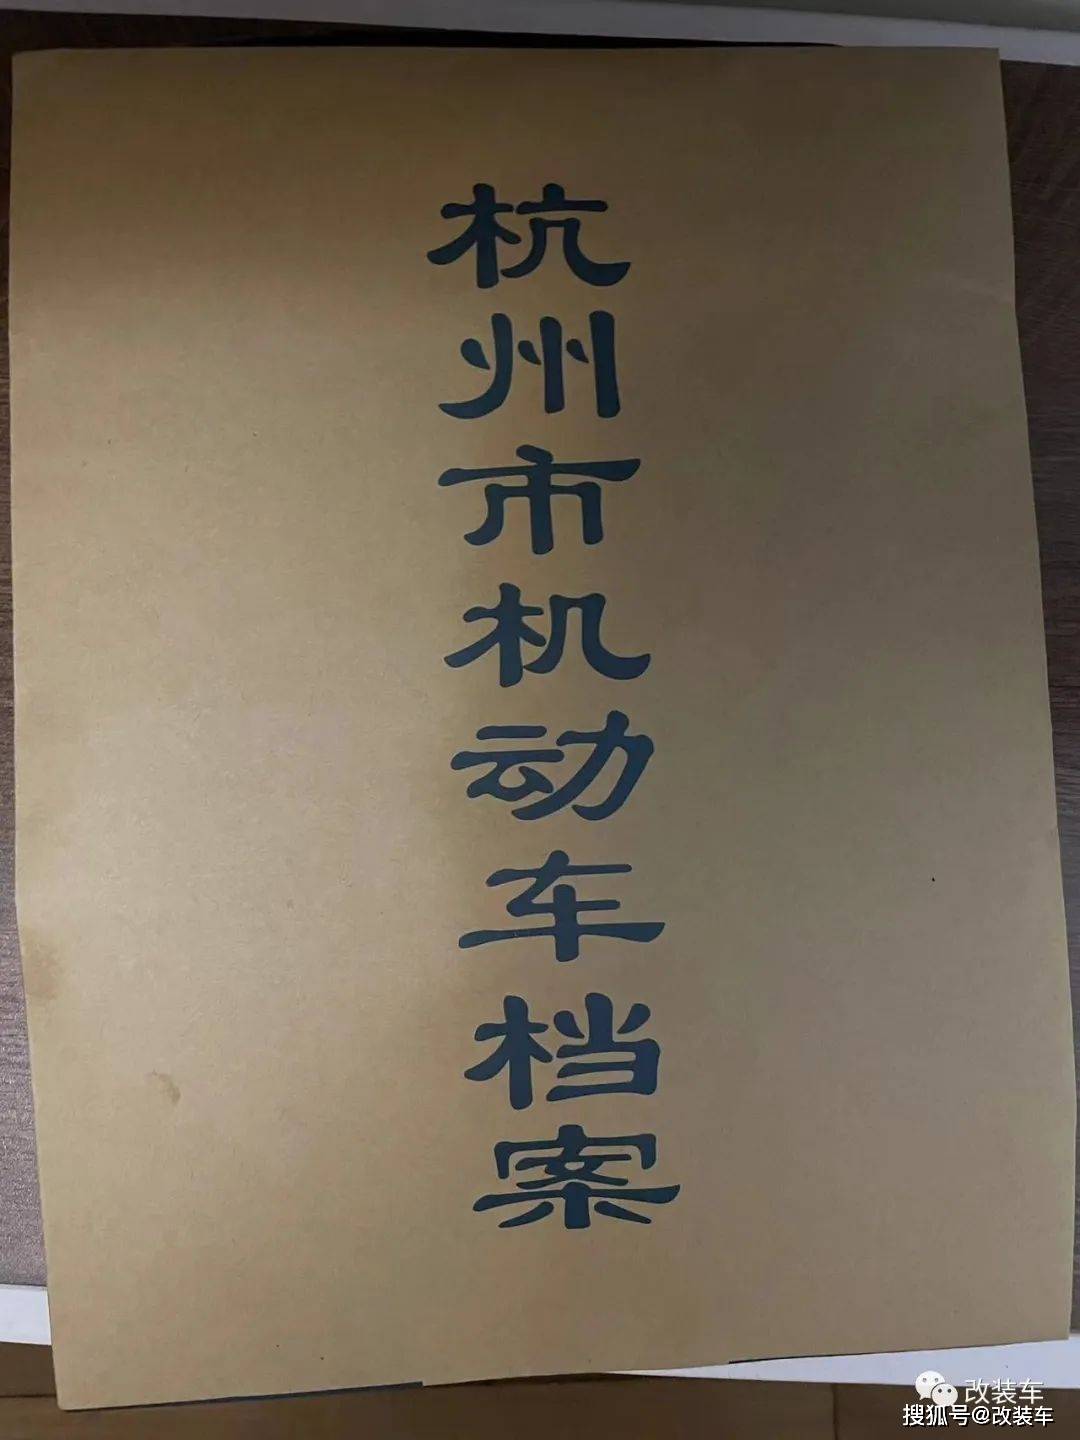 杭州市机动车档案
改装车
搜狐号@改装车